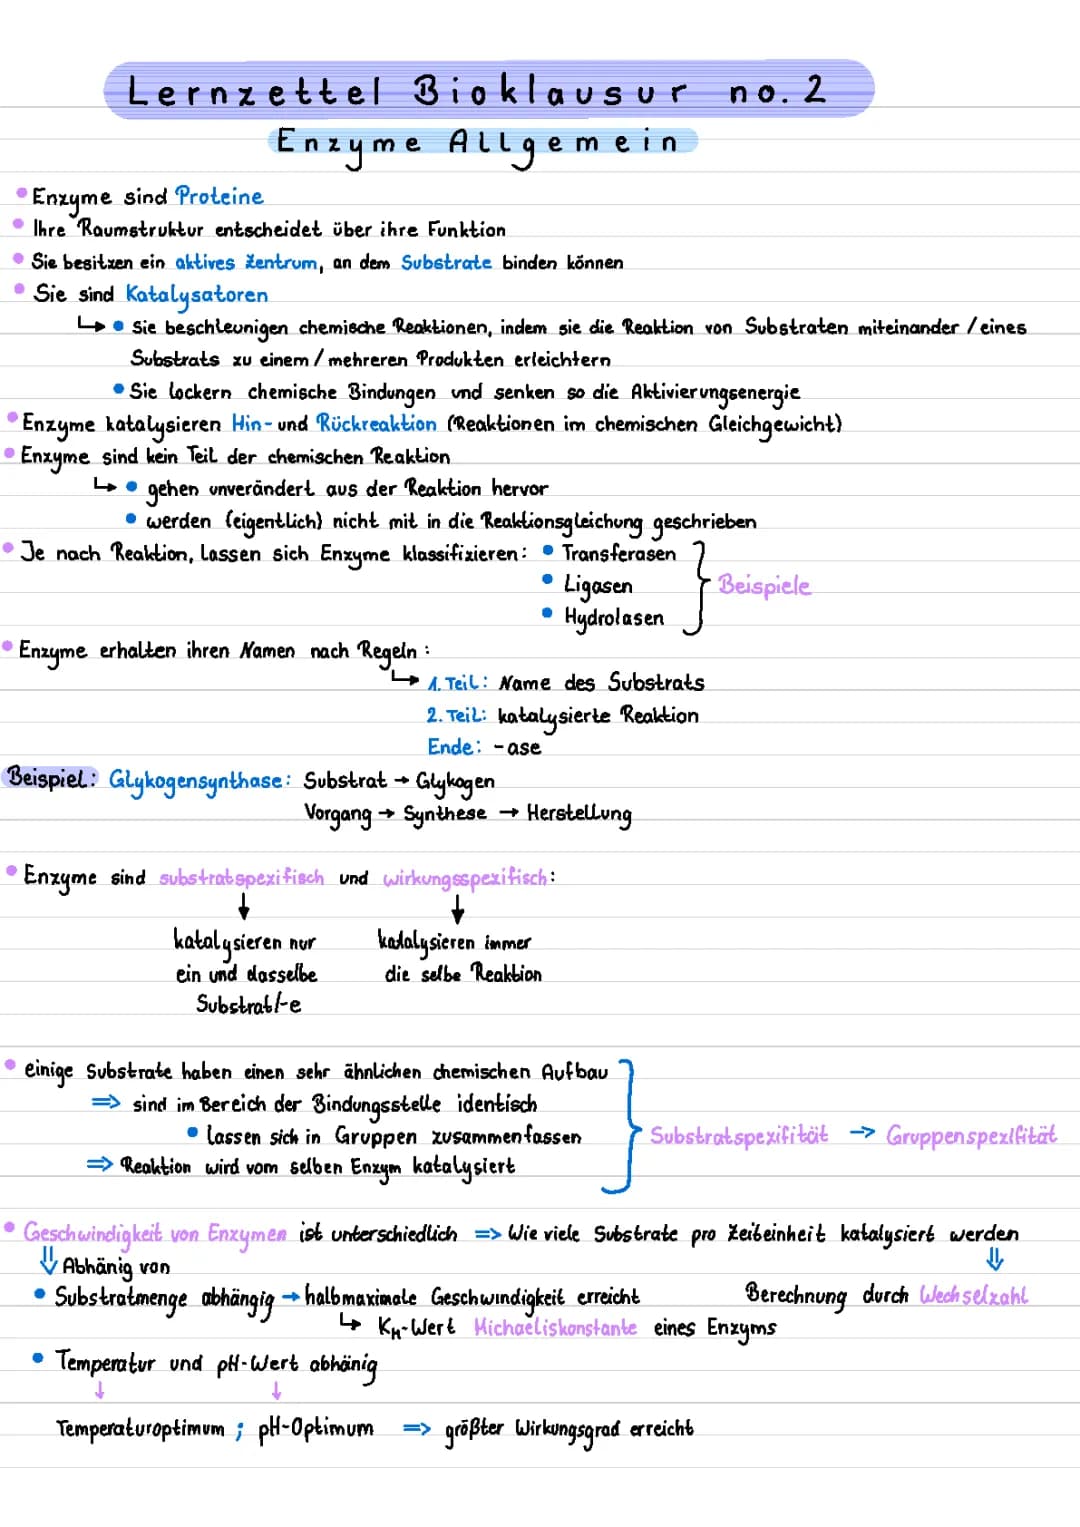 Lernzettel Bioklausur no. 2
Enzyme Allgemein
• Enzyme sind Proteine
• Ihre Raumstruktur entscheidet über ihre Funktion
• Sie besitzen ein aktives Zentrum, an dem Substrate binden können
• Sie sind Katalysatoren
↳ • Sie beschleunigen chemische Reaktionen, indem sie die Reaktion von Substraten miteinander / eines
Substrats zu einem / mehreren Produkten erleichtern
• Sie lockern chemische Bindungen und senken so die Aktivierungsenergie
• Enzyme katalysieren Hin- und Rückreaktion (Reaktionen im chemischen Gleichgewicht)
• Enzyme sind kein Teil der chemischen Reaktion
↳ • gehen unverändert aus der Reaktion hervor
• werden (eigentlich) nicht mit in die Reaktionsgleichung geschrieben
• Je nach Reaktion, lassen sich Enzyme klassifizieren: • Transferasen
• Ligasen } Beispiele
• Hydrolasen
• Enzyme erhalten ihren Namen nach Regeln:
↳ 1. Teil: Name des Substrats
2. Teil: katalysierte Reaktion
Ende: -ase
Beispiel: Glykogensynthase: Substrat → Glykogen
Vorgang → Synthese → Herstellung
• Enzyme sind substratspezifisch und wirkungsspezifisch:
↓ ↓
katalysieren nur katalysieren immer
ein und dasselbe die selbe Reaktion
Substrat/-e
• einige Substrate haben einen sehr ähnlichen chemischen Aufbau
⇒ sind im Bereich der Bindungsstelle identisch
• lassen sich in Gruppen zusammenfassen } Substratspezifität → Gruppenspezifität
⇒ Reaktion wird vom selben Enzym katalysiert
• Geschwindigkeit von Enzymen ist unterschiedlich ⇒ Wie viele Substrate pro Zeiteinheit katalysiert werden
⇓ Abhänig von ⇓
• Substratmenge abhängig → halbmaximale Geschwindigkeit erreicht Berechnung durch Wechselzahl
↳ KM-Wert Michaeliskonstante eines Enzyms
• Temperatur und pH-Wert abhänig
↓ ↓
Temperaturoptimum ; pH-Optimum ⇒ größter Wirkungsgrad erreicht